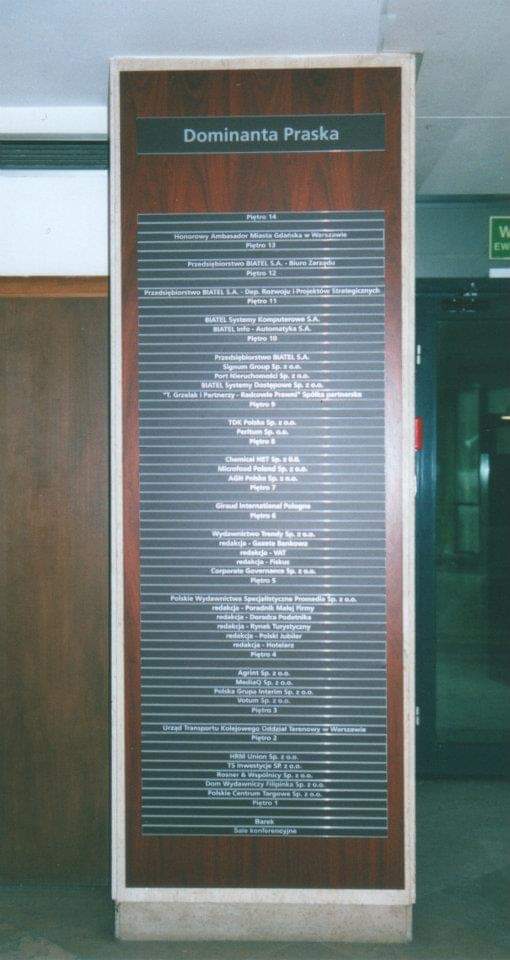 Dominanta Praska
Piętro 14
Honorowy Ambasador Miasta Gdańska w Warszawie
Piętro 13
Przedsiębiorstwo BIATEL S.A. - Biuro Zarządu
Piętro 12
Przedsiębiorstwo BIATEL S.A. - Dep. Rozwoju i Projektów Strategicznych
Piętro 11
BIATEL Systemy Komputerowe S.A.
BIATEL Info - Automatyka S.A.
Piętro 10
Przedsiębiorstwo BIATEL S.A.
Signum Group Sp. z o.o.
Port Nieruchomości Sp. z o.o.
BIATEL Systemy Dostępowe Sp. z o.o.
"T. Grzelak i Partnerzy - Radcowie Prawni" Spółka partnerska
Piętro 9
TDK Polska Sp. z o.o.
Peritum Sp. o.o.
Piętro 8
Chemical NET Sp. z o.o.
Microfood Poland Sp. z o.o.
AGN Polska Sp. z o.o.
Piętro 7
Giraud International Pologne
Piętro 6
Wydawnictwo Trendy Sp. z o.o.
redakcja - Gazeta Bankowa
redakcja - VAT
redakcja - Fiskus
Corporate Governance Sp. z o.o.
Piętro 5
Polskie Wydawnictwa Specjalistyczne Promedia Sp. z o.o.
redakcja - Poradnik Małej Firmy
redakcja - Doradca Podatnika
redakcja - Rynek Turystyczny
redakcja - Polski Jubiler
redakcja - Hotelarz
Piętro 4
Agrint Sp. z o.o.
MediaQ Sp. z o.o.
Polska Grupa Interim Sp. z o.o.
Votum Sp. z o.o.
Piętro 3
Urząd Transportu Kolejowego Oddział Terenowy w Warszawie
Piętro 2
HRM Union Sp. z o.o.
TS Inwestycje SP. z o.o.
Rosner & Wspólnicy Sp. z o.o.
Dom Wydawniczy Filipinka Sp. z o.o.
Polskie Centrum Targowe Sp. z o.o.
Piętro 1
Barek
Sale konferencyjne
W
EW